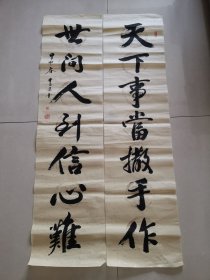 天下事當撒手作
世間人到信心難